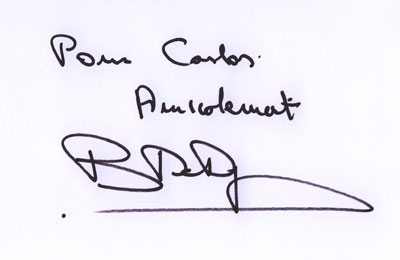 Pour Carlos.
Amicalement